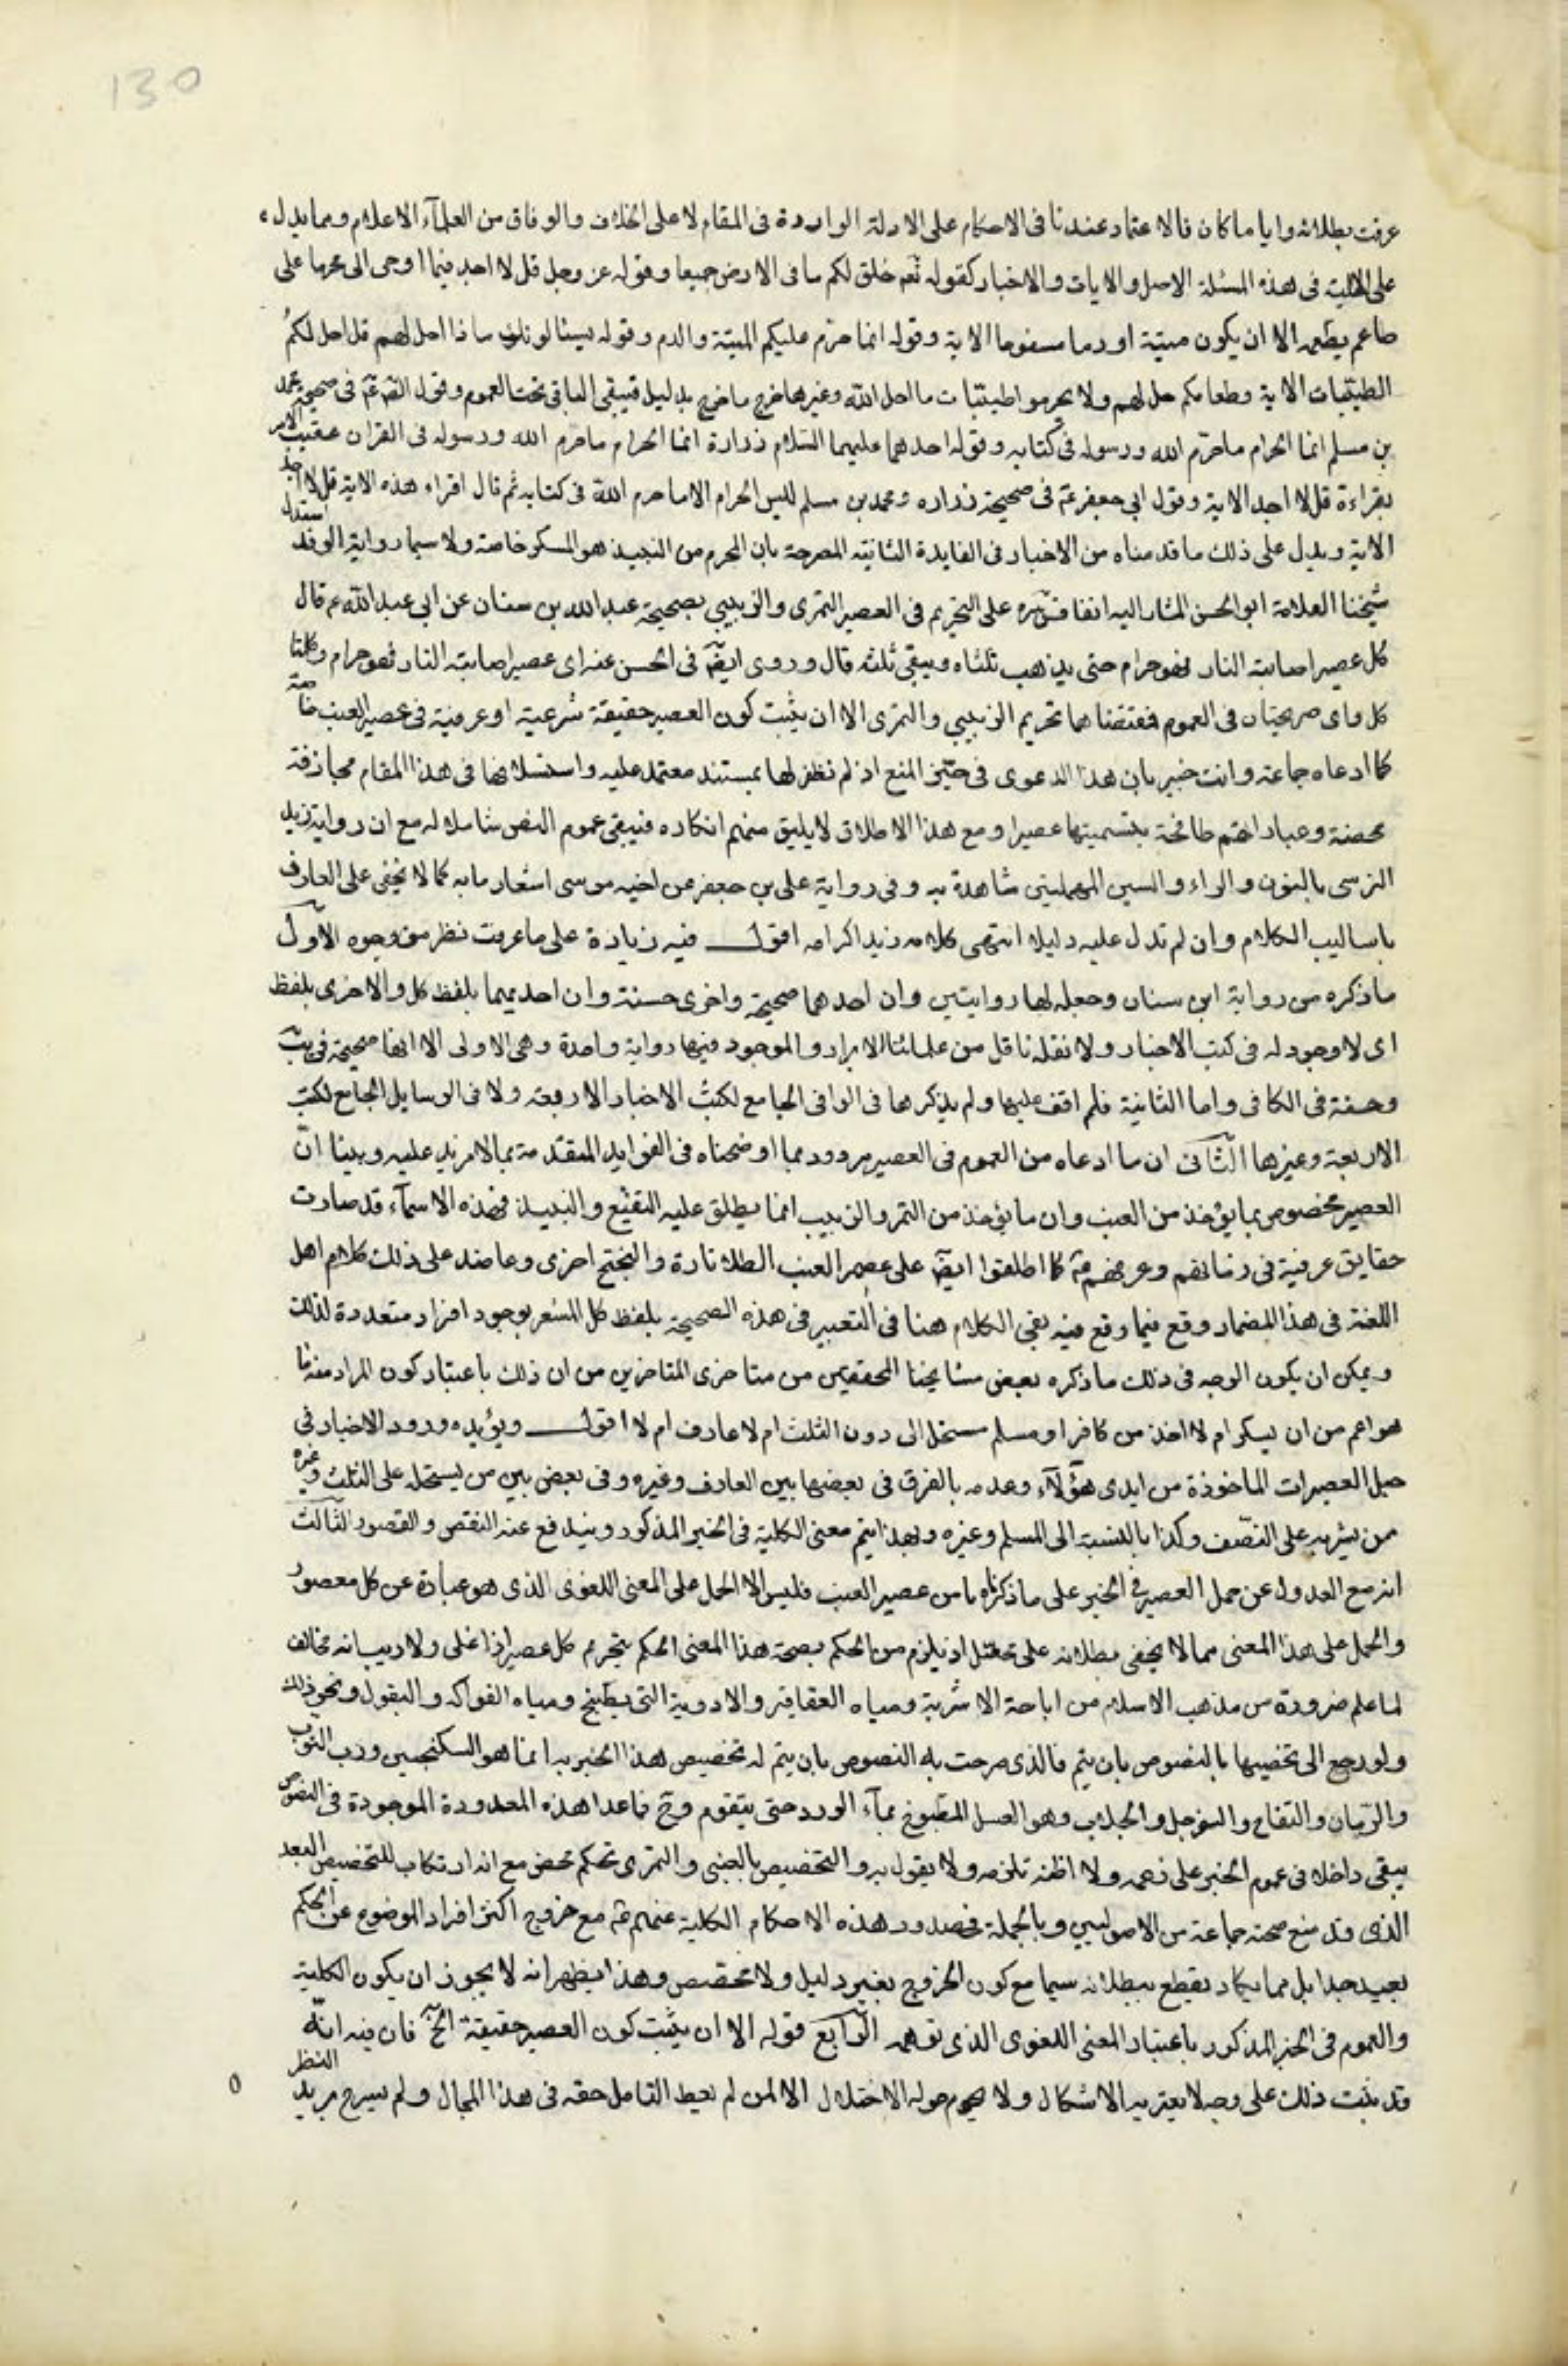 130
عرفت بطلانه وايا ما كان فالاعتماد عندنا فى الاحكام على الادلة الواردة فى المقام لا على الخلاف والوفاق من العلمآء الاعلام ومما يدل
على الحلية فى هذه المسئلة الاصل والايات والاخبار كقوله تعم خلق لكم ما فى الارض جميعا وقوله عز وجل قل لا اجد فيما اوحى الى محرما على
طاعم يطعمه الا ان يكون ميتة او دما مسفوحا الاية وقوله انما حرم عليكم الميتة والدم وقوله يسئالونك ماذا احل لهم قل احل لكم
الطيبات الاية وطعامكم حل لهم ولا تحرموا طيبات ما احل الله وغيرها خرج ما خرج بدليل فيبقى الباقى تحت العموم وقول الص ع فى صحيح محمد
بن مسلم انما الحرام ما حرم الله ورسوله فى كتابه وقوله احدهما عليهما السلام زرارة انما الحرام ما حرم الله ورسوله فى القران عقيب الامر
بقراءة قل لا اجد الاية وقول ابى جعفر ع فى صحيحة زراره ومحمد بن مسلم لليس الحرام الا ما حرم الله فى كتابه ثم قال اقراء هذه الاية قل لا اجد
الاية ويدل على ذلك ما قدمناه من الاخبار فى الفايدة الثانية المصرحة بان المحرم من النبيذ هو المسكر خاصة ولا سيما رواية الوفد استدل
شيخنا العلامة ابو الحسن المشار اليه انفا قدس سره على التحريم فى العصير التمرى والزبيبى بصحيحة عبد الله بن سنان عن ابى عبد الله ع قال
كل عصير اصابته النار فهو حرام حتى يذهب ثلثاه ويبقى ثلثه قال وروى ايضا فى الحسن عنه اى عصير اصابته النار فهو حرام وكلتا
كل واى صريحتان فى العموم فمقتضاهما تحريم الزبيبى والتمرى الا ان يثبت كون العصير حقيقة شرعية او عرفية فى عصير العنب خاصة
كما ادعاه جماعة وانت خبير بان هذا الدعوى فى حيز المنع اذ لم نظفر لها بمستند معتمد عليه واستسلافها فى هذا المقام مجازفة
محضة وعباراتهم طافحة بتسميتها عصيرا ومع هذا الاطلاق لا يليق منهم انكاره فيبقى عموم النص شاملا له مع ان رواية زيد
النرسى بالنون والراء والسين المهملتين شاهدة به وفى رواية على بن جعفر عن اخيه موسى اشعار ما به كما لا يخفى على العارف
باساليب الكلام وان لم تدل عليه دليلا انتهى كلامه زيد اكرامه اقول فيه زيادة على ما عرفت نظر من وجوه الاول
ما ذكره من رواية ابن سنان وجعله لها روايتين وان احدهما صحيحة واخرى حسنة وان احديهما بلفظ كل والاخرى بلفظ
اى لا وجود له فى كتب الاخبار ولا نقله ناقل من علمائنا الابرار والموجود فيها رواية واحدة وهى الاولى الا انها صحيحة فى يب
وحسنة فى الكافى واما الثانية فلم اقف عليها ولم يذكرها فى الوافى الجامع لكتب الاخبار الاربعة ولا فى الوسايل الجامع لكتب
الاربعة وغيرها الثانى ان ما ادعاه من العموم فى العصير مردود بما اوضحناه فى الفوايد المتقدمة بما لا مزيد عليه وبينا ان
العصير مخصوص بما يؤخذ من العنب وان ما يؤخذ من التمر والزبيب انما يطلق عليه النقيع والنبيذ فهذه الاسمآء قد صارت
حقايق عرفية فى زمانهم وعرفهم ع كما اطلقوا ايضا على عصير العنب الطلا تارة والبختج اخرى وعاضد على ذلك كلام اهل
اللغة فى هذا المضمار وقع فيما وقع فيه بقى الكلام هنا فى التعبير فى هذه الصحيحة بلفظ كل المشعر بوجود افراد متعددة لذلك
ويمكن ان يكون الوجه فى ذلك ما ذكره بعض مشايخنا المحققين من متاخرى المتاخرين من ان ذلك باعتبار كون المراد منه ما
هو اعم من ان يسكر ام لا اخذ من كافر او مسلم مستحل الى دون الثلث ام لا عارف ام لا اقول ويؤيده ورود الاخبار فى
حل العصيرات الماخوذة من ايدى هؤلآء وعدمه بالفرق فى بعضها بين العارف وغيره وفى بعض بين من يستحله على الثلث وغيره
ممن يشربه على النصف وكذا بالنسبة الى المسلم وغيره وبهذا يتم معنى الكلية فى الخبر المذكور ويندفع عنه النقص والقصور الثالث
انه مع العدول عن حمل العصير فى الخبر على ما ذكرناه من عصير العنب فليس الا الحمل على المعنى اللغوى الذى هو عبارة عن كل معصور
والحمل على هذا المعنى مما لا يخفى بطلانه على محتمل اذ يلزم من الحكم بصحة هذا المعنى الحكم بتحريم كل عصير اذا غلى ولا ريب انه مخالف
لما علم ضرورة من مذهب الاسلام من اباحة الاشربة ومياه العقاقير والادوية التى يطبخ ومياه الفواكه والبقول ونحو ذلك
ولو رجع الى تخصيصها بالنصوص بان يتم فالذى صرحت به النصوص بان يتم له تخصيص هذا الخبر به انما هو السكنجبين ورب التوت
والرمان والتفاح والسفرجل والجلاب وهو العسل المطبوخ بمآء الورد حتى يتقوم وح فما عدا هذه المعدودة الموجودة فى النصوص
يبقى داخلا فى عموم الخبر على زعمه ولا اظنه تلزمه ولا يقول به والتخصيص بالعنبى والتمرى تحكم محض مع انه ارتكاب للتخصيص البعيد
الذى قد منع صحته جماعة من الاصوليين وبالجملة فصدور هذه الاحكام الكلية عنهم ع مع خروج اكثر افراد الموضوع عن الحكم
بعيد جدا بل مما يكاد يقطع ببطلانه سيما مع كون الخروج بغير دليل ولا تخصيص وهذا يظهر انه لا يجوز ان يكون الكلية
والعموم فى الخبر المذكور باعتبار المعنى اللغوى الذى توهمه الرابع قوله الا ان يثبت كون العصير حقيقة الخ فان فيه انه
قد ثبت ذلك على وجه لا يعتريه الاشكال ولا يحوم حوله الاختلال الا لمن لم يعط التامل حقه فى هذا المجال ولم يسرح بريد النظر